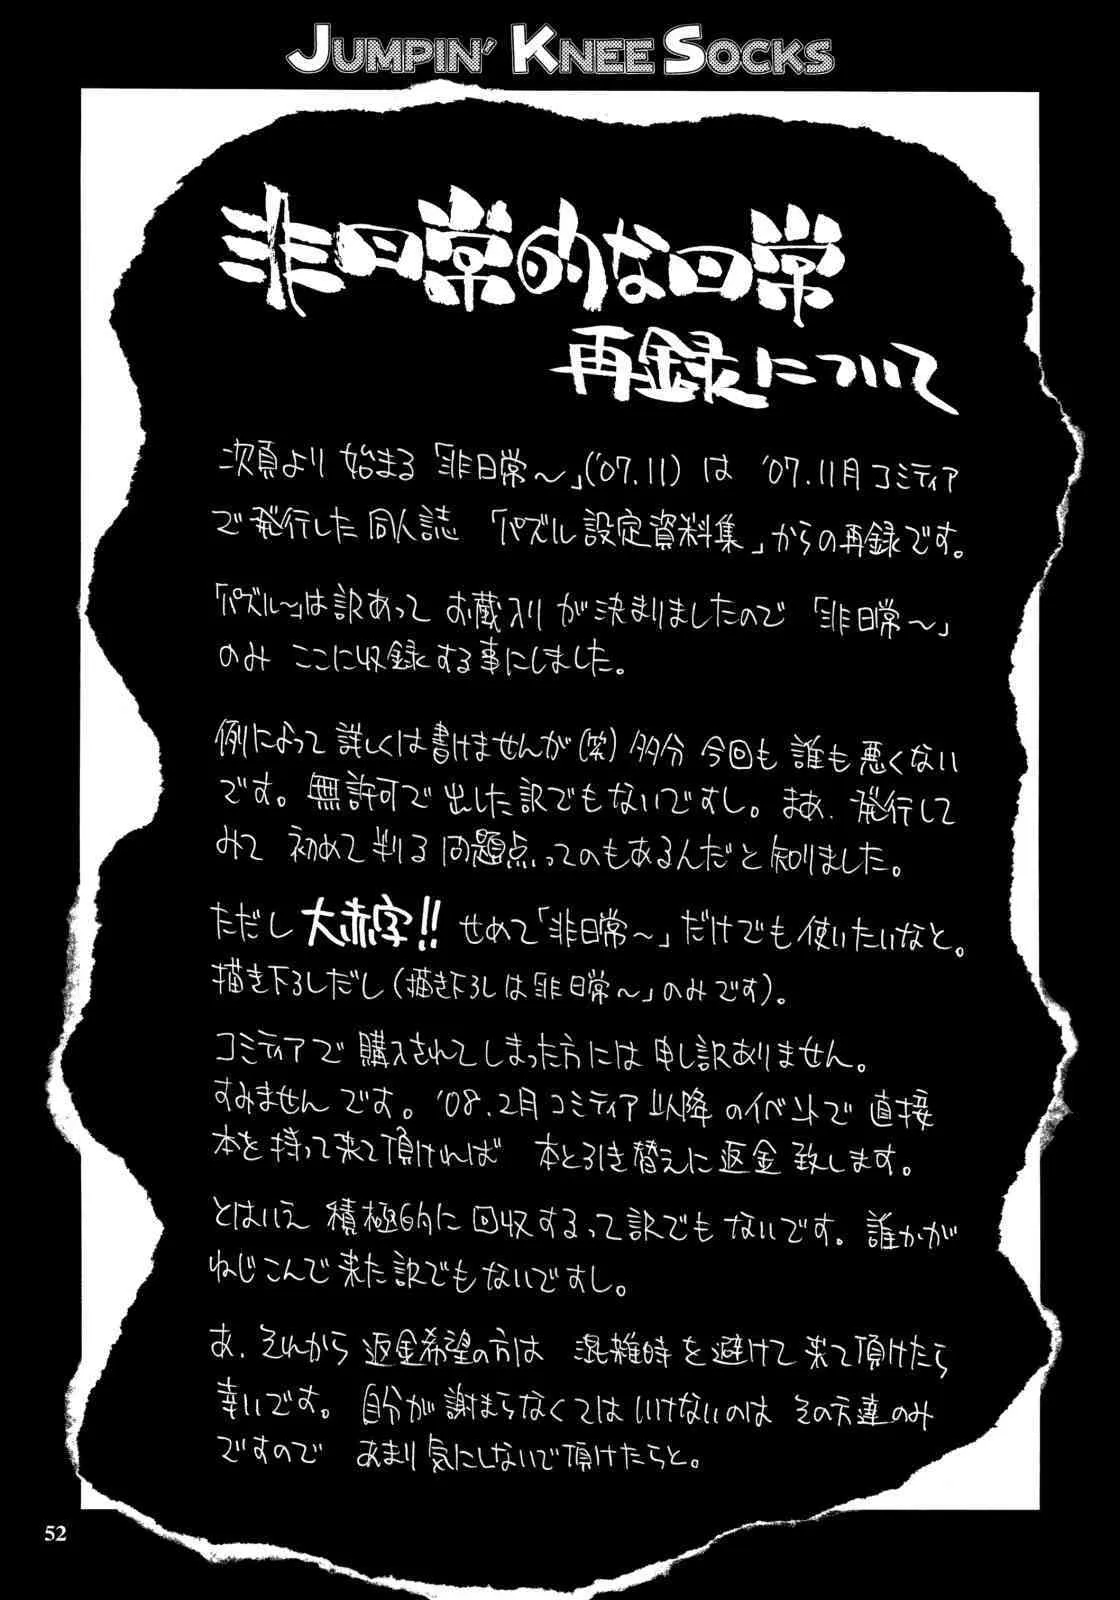 JUMPIN' KNEE SOCKS
非日常的な日常
再録について
次頁より始まる「非日常〜」('07.11)は '07.11月コミティア
で発行した同人誌 「パズル設定資料集」からの再録です。
「パズル〜」は訳あって お蔵入りが決まりましたので 「非日常〜」
のみ ここに収録する事にしました。
例によって詳しくは書けませんが(笑) 多分 今回も 誰も悪くない
です。無許可で出した訳でもないですし。まあ、発行して
みて 初めて判る問題点ってのもあるんだと知りました。
ただし大赤字!! せめて「非日常〜」だけでも使いたいなと。
描き下ろしだし(描き下ろしは「非日常〜」のみです)。
コミティアで購入されてしまった方には申し訳ありません。
すみませんです。'08.2月コミティア以降のイベントで直接
本を持って来て頂ければ 本と引き替えに返金致します。
とはいえ 積極的に回収するって訳でもないです。誰かが
ねじこんで来た訳でもないですし。
あ、それから返金希望の方は 混雑時を避けて来て頂けたら
幸いです。自分が謝まらなくてはいけないのは その方達のみ
ですので あまり気にしないで頂けたらと。
52